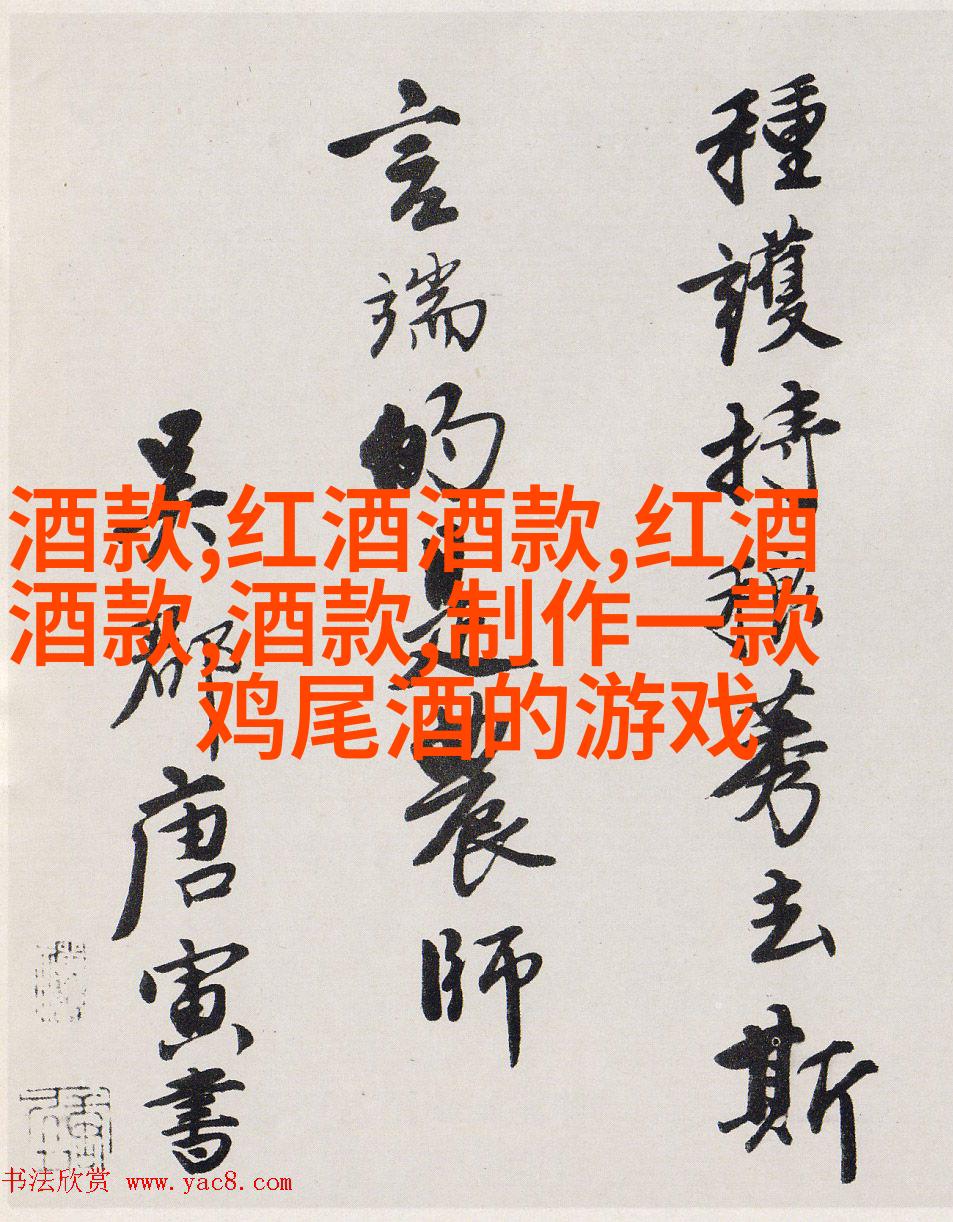 種護持莠去斯
言端的是農師
吳郡唐寅書
酒款,红酒酒款,红酒
酒款,酒款,制作一款
鸡尾酒的游戏
书法欣赏 www.yac8.com